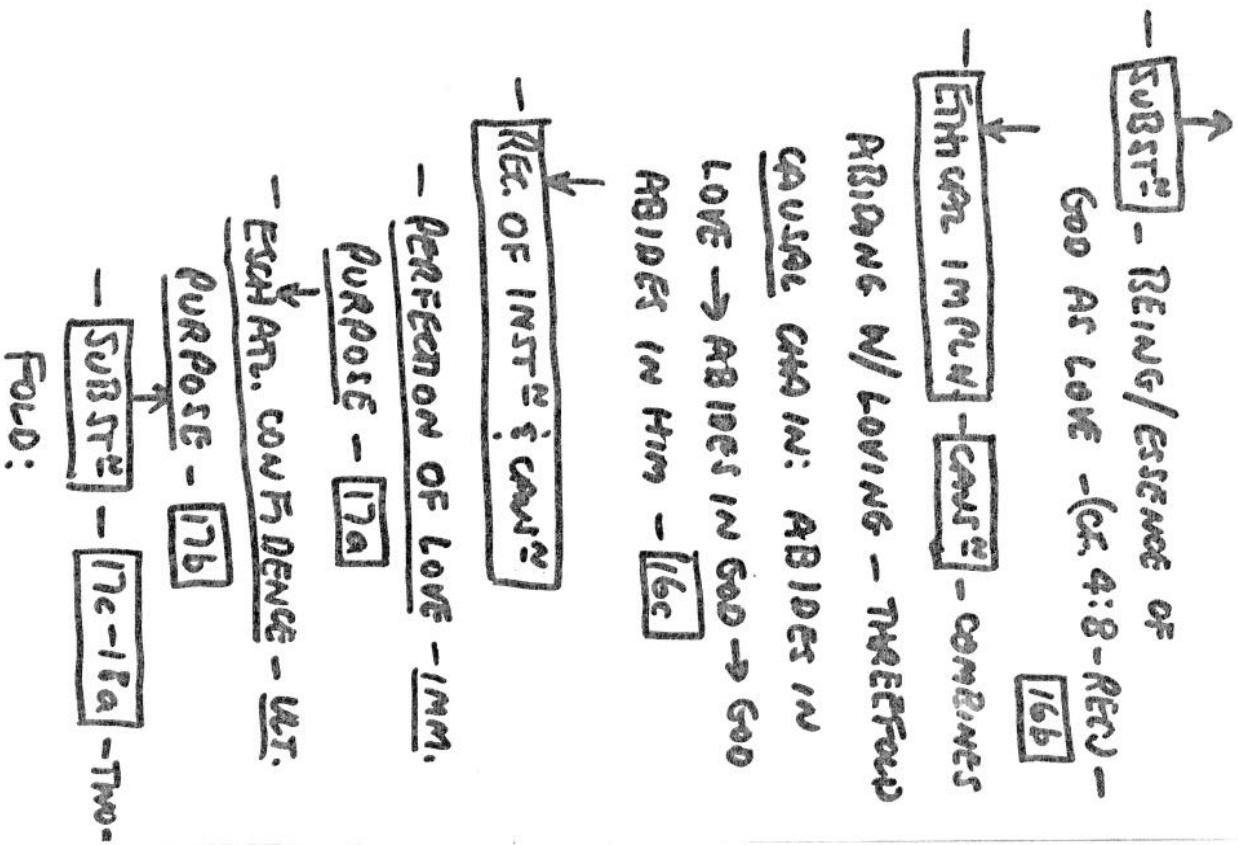 - SUBSTᴺ - BEING/ESSENCE OF
GOD AS LOVE - (CF. 4:8 - REC) -
16b
- ETHICAL IMPLN - CAUSᴺ - COMBINES
ABIDING W/ LOVING - THREEFOLD
CAUSAL CHAIN: ABIDES IN
LOVE → ABIDES IN GOD → GOD
ABIDES IN HIM - 16c
- REC. OF INSTᴺ & CAUSᴺ
- PERFECTION OF LOVE - IMM.
PURPOSE - 17a
- ESCHATL. CONFIDENCE - ULT.
PURPOSE - 17b
- SUBSTᴺ - 17c-18a - TWO-
FOLD: